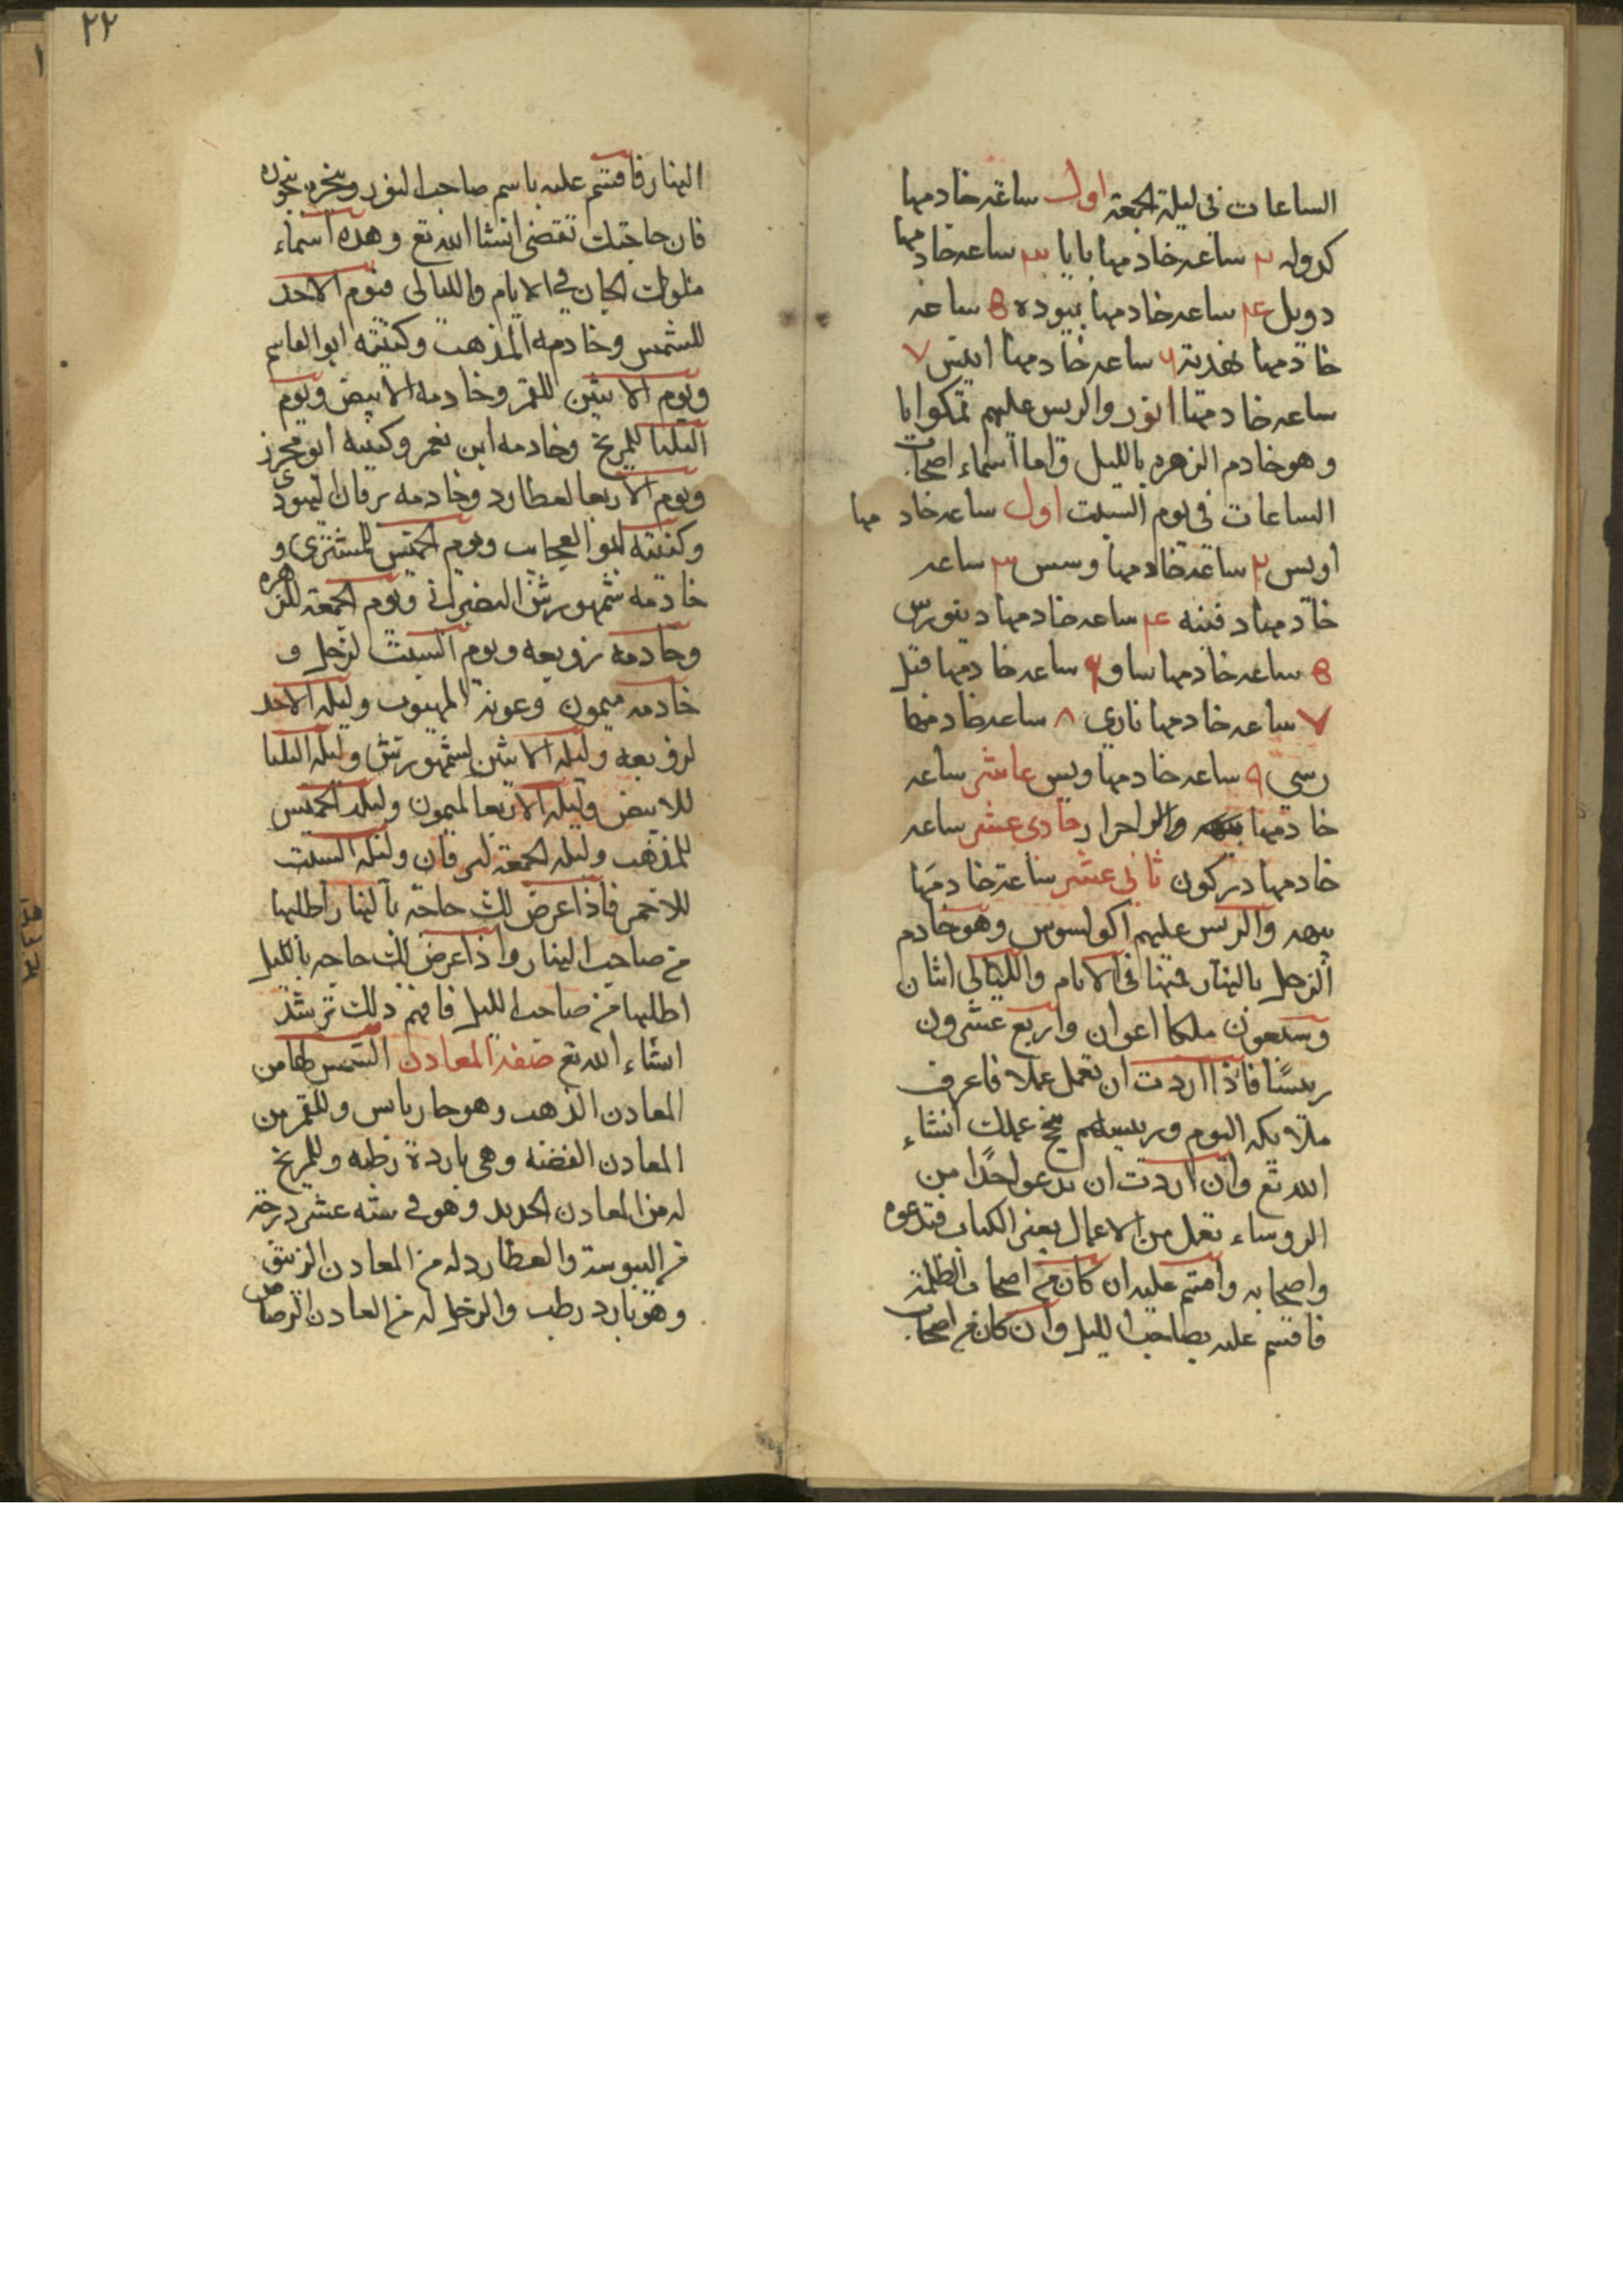 الساعات فى ليلة الجمعة اول ساعة خادمها
كدوله ٢ ساعه خادمها بابا ٣ ساعه خادمها
دويل ٤ ساعه خادمها بيوده ٥ ساعه
خادمها ٦ ساعه خادمها ٧
ساعه خادمها انور والريس عليهم تمكوابا
وهو خادم الزهره بالليل واما اسماء اصحاب
الساعات فى يوم السبت اول ساعه خادمها
اويس ٢ ساعة خادمها وسس ٣ ساعه
خادمها دفننه ٤ ساعه خادمها دينورس
٥ ساعه خادمها ساو ٦ ساعه خادمها قتل
٧ ساعه خادمها نارى ٨ ساعه خادمها
رسي ٩ ساعه خادمها ويس عاشر ساعه
خادمها حادى عشر ساعه
خادمها دركون ثانى عشر ساعة خادمها
والريس عليهم اكولسوس وهو خادم
الزحل بالنهار فهنا فى الايام والليالى اثنان
وسبعون ملكا اعوان واربع عشرون
ريسًا فاذا اردت ان تعمل عملا فاعرف
ملايكه اليوم وريسهم ينجح عملك انشاء
الله تع وان اردت ان تدعو احدًا من
الروساء تعمل من الاعمال يعنى الكتاب فتدعوه
واصحابه واقسم عليه ان كان من اصحاب الظلمة
فاقسم عليه بصاحب الليل وان كان من اصحاب
٢٢
النهار فاقسم عليه باسم صاحب النور وبخره بخوره
فان حاجتك تقضى انشا الله تع وهذه اسماء
ملوك الجان فى الايام والليالى فيوم الاحد
للشمس وخادمه المذهب وكنيته ابو القاسم
ويوم الاثنين للقمر وخادمه الابيض ويوم
الثلثا للمريخ وخادمه ابن نعمر وكنيته ابو محرز
ويوم الاربعا لعطارد وخادمه برقان اليهودى
وكنيته ابو العجايب ويوم الخميس للمشترى و
خادمه شمهورش ويوم الجمعة للزهره
وخادمه زوبعه ويوم السبت لزحل و
خادمه ميمون وعونه المهيوب وليلة الاحد
لزوبعه وليلة الاثنين لشمهورش وليلة الثلثا
للابيض وليلة الاربعا لميمون وليلة الخميس
للمذهب وليلة الجمعة لبرقان وليلة السبت
للاحمر فاذا عرض لك حاجة بالنهار اطلبها
من صاحب النهار واذا عرض لك حاجه بالليل
اطلبها من صاحب الليل فافهم ذلك ترشد
انشاء الله تع صفة المعادن الشمس لها من
المعادن الذهب وهو حار يابس وللقمر من
المعادن الفضه وهى باردة رطبه وللمريخ
له من المعادن الحديد وهو فى سته عشر درجة
من اليبوسة والعطارد له من المعادن الزيبق
وهو بارد رطب والزحل له من المعادن الرصاص